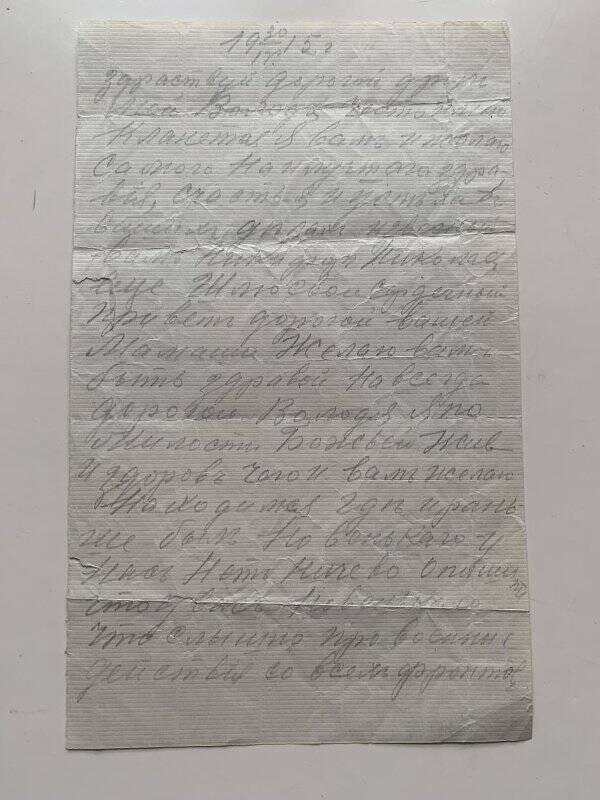 19 30/IV 15 г
здраствуй дорогой друг
мой Володя
Кланеюся я вамъ и желаю
самого наилутшого здра-
вія, счастья и успеха въ
вашихъ делах
вамъ Николая
еще Шлю свой сардечный
привѣтъ дорогой вашей
Мамаши Желаю вамъ
быть здравой навсегда
дорогой Володя Я по
Милости Божьей Жив
и здоровъ чого и вамъ желаю
Находимся гдѣ и рань-
ше был Новенького у
Насъ Нетъ Ничево Опиши
что у васъ
что слышно про военные
действія со всехъ фронтов